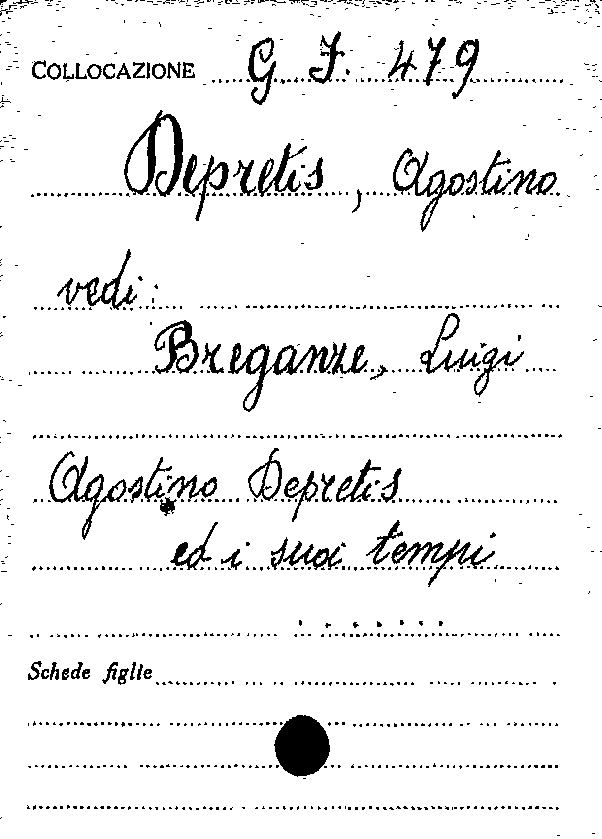 COLLOCAZIONE G I. 479
Depretis, Agostino
vedi:
Breganze, Luigi
Agostino Depretis
ed i suoi tempi
.......
Schede figlie